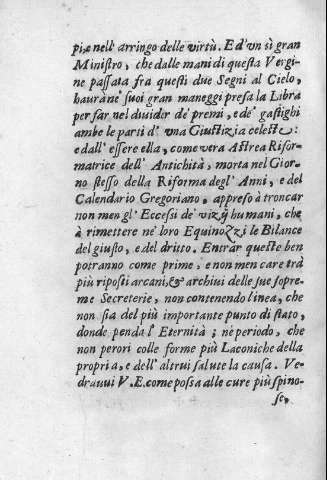 piæ nell' arringo delle virtù. E d'vn sì gran
Ministro, che dalle mani di questa Vergi-
ne passata fra questi due Segni al Cielo,
haurà ne' suoi gran maneggi presa la Libra
per far nel diuider de' premi, e de' gastighi
ambe le parti d' vna Giustizia celeste:
e dall' essere ella, come vera Astrea Rifor-
matrice dell' Antichità, morta nel Gior-
no stesso della Riforma degl' Anni, e del
Calendario Gregoriano, appreso à troncar
non men gl' Eccessi de' vizÿ humani, che
à rimettere ne' loro Equinozzi le Bilance
del giusto, e del dritto. Entrar queste ben
potranno come prime, e non men care trà
più riposti arcani, & archiui delle sue supre-
me Secreterie, non contenendo linea, che
non sia del più importante punto di stato,
donde penda l' Eternità; nè periodo, che
non perori colle forme più Laconiche della
propria, e dell' altrui salute la causa. Ve-
drauui V. E. come possa alle cure più spino-
se,